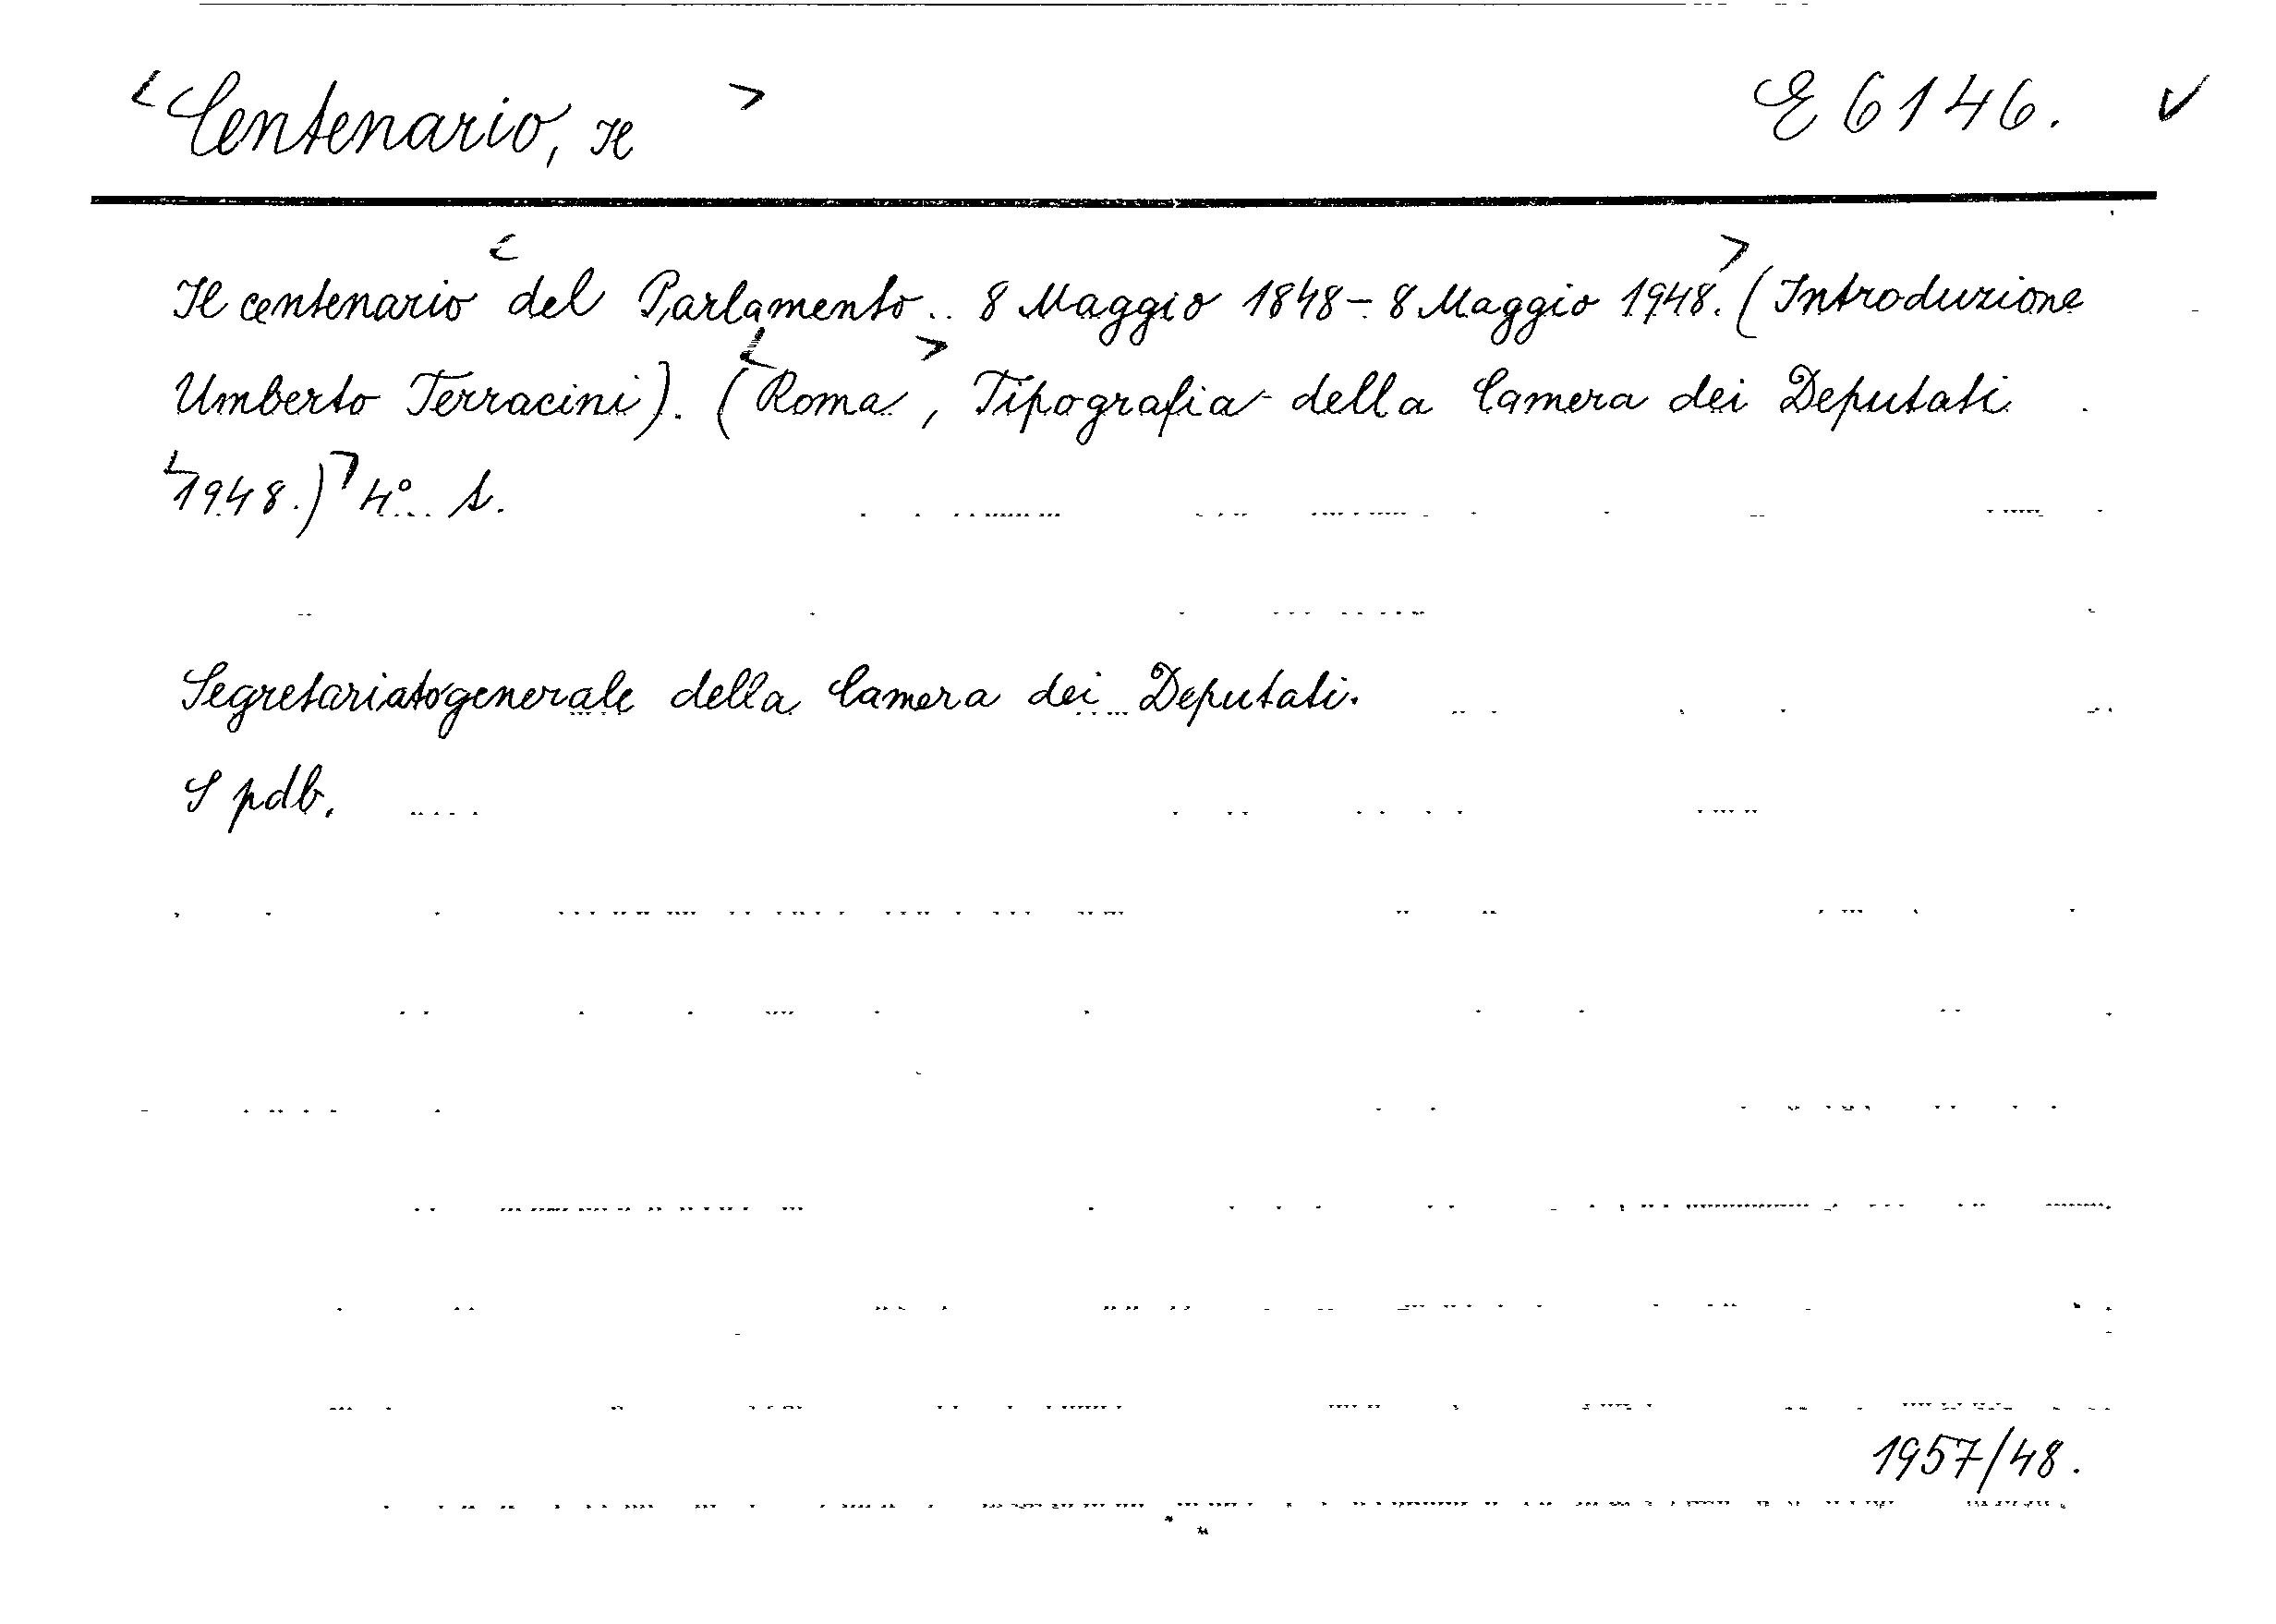 <Centenario, Il> E 6146. ✓
Il centenario <del Parlamento. 8 Maggio 1848 - 8 Maggio 1948.> (Introduzione
Umberto Terracini). (<Roma>, Tipografia della Camera dei Deputati
<1948.)> 4° s.
Segretariato generale della Camera dei Deputati.
S pdb.
1957/48.